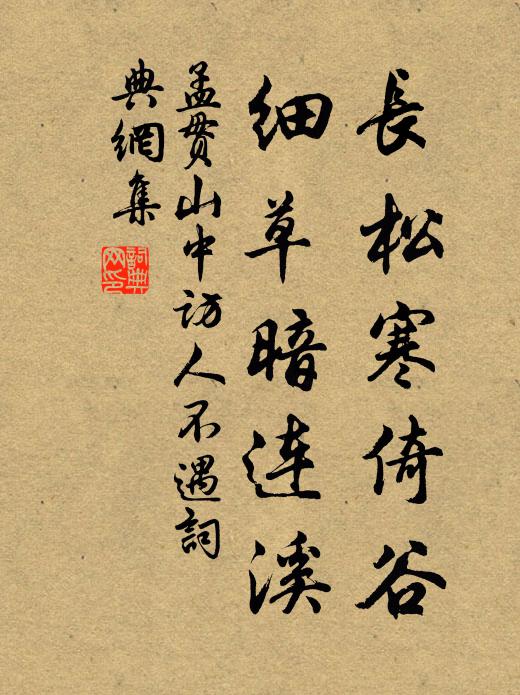 長松寒倚谷
细草暗连溪
孟贯山中访人不遇詞
典網集
詞典
网印